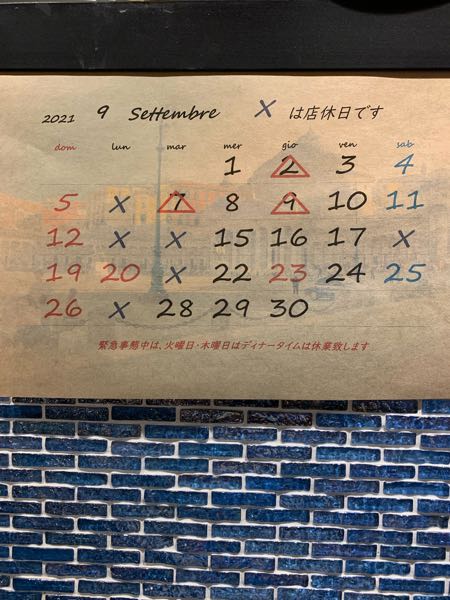 2021 9 Settembre X は店休日です
dom lun mar mer gio ven sab
1 2 3 4
5 X 7 8 9 10 11
12 X X 15 16 17 X
19 20 X 22 23 24 25
26 X 28 29 30
緊急事態中は、火曜日・木曜日はディナータイムは休業致します